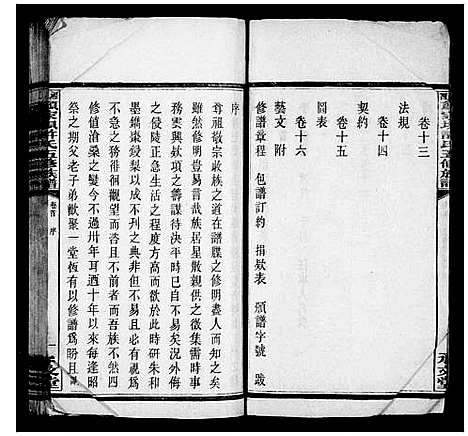 卷十三
法規
卷十四
契約
卷十五
圖表
卷十六
藝文 附
修譜章程 包譜訂約 捐欵表 頒譜字號 跋
序
尊祖敬宗收族之道在譜牒之修明盡人而知之矣
雖然修明豈易言哉族居星散親供之徵集需時事
務叐興欵項之籌謀待决平時已自不易矣況外侮
之侵陵日逼生活之程度方高而欲於此時研朱和
墨鐫棗授梨以成不刋之典非但不易且必有視爲
不急之務徘徊觀望而沓且不前者而吾族不然四
修值滄桑之變今不過卅年耳酒十年以來每逢昭
祭之期父老子弟歡聚一堂恆有以修譜爲盼且
卷首 序
一